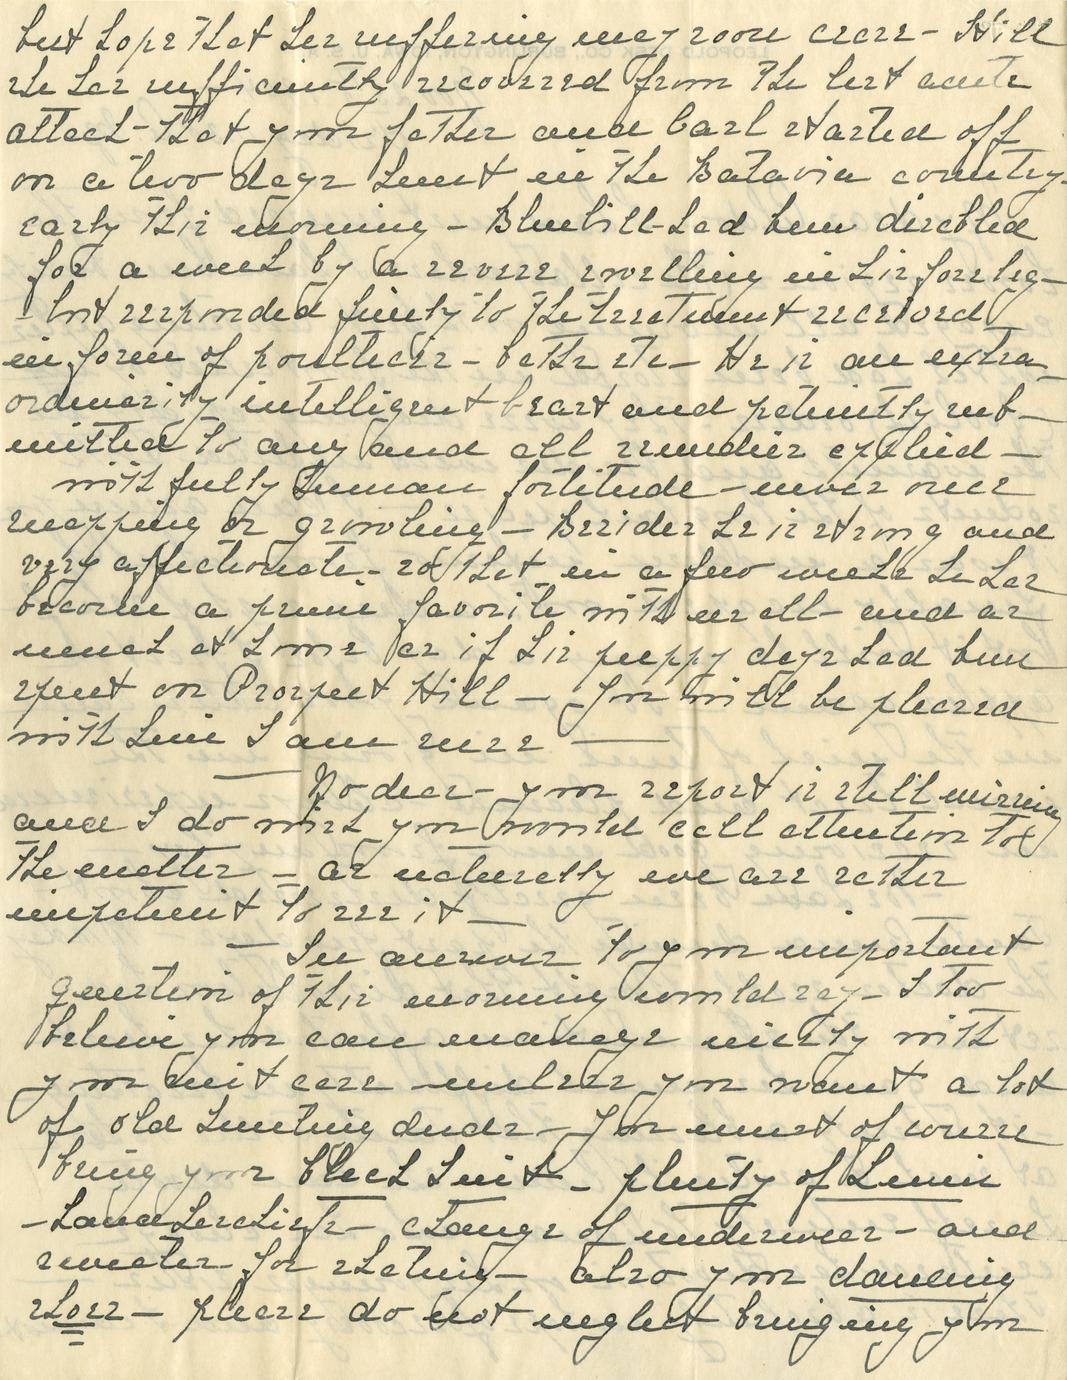 but hope that her suffering may soon cease - Still
she has sufficiently recovered from the last acute
attack - that your father and Carl started off
on a two days hunt in the Batavia country -
early this morning - Bluebill - had been disabled
for a week by a severe swelling in his foreleg -
but responded finely to the treatment received
in form of poultices - baths etc - He is an extra-
ordinarily intelligent beast and patiently sub-
mitted to any and all remedies applied -
with fully human fortitude - never once
snapping or growling - Besides he is strong and
very affectionate - so that in a few weeks he has
become a prime favorite with us all - and as
much at home as if his puppy days had been
spent on Prospect Hill - You will be pleased
with him I am sure -
- No dear - your report is still missing
and I do wish you would call attention to
the matter - as naturally we are rather
impatient to see it -
- In answer to your important
question of this morning would say - I too
believe you can manage nicely with
your suit case - unless you want a lot
of old hunting duds - You must of course
bring your black suit - plenty of linen
- handkerchiefs - change of underwear - and
sweater for skating - also your dancing
shoes - please do not neglect bringing your